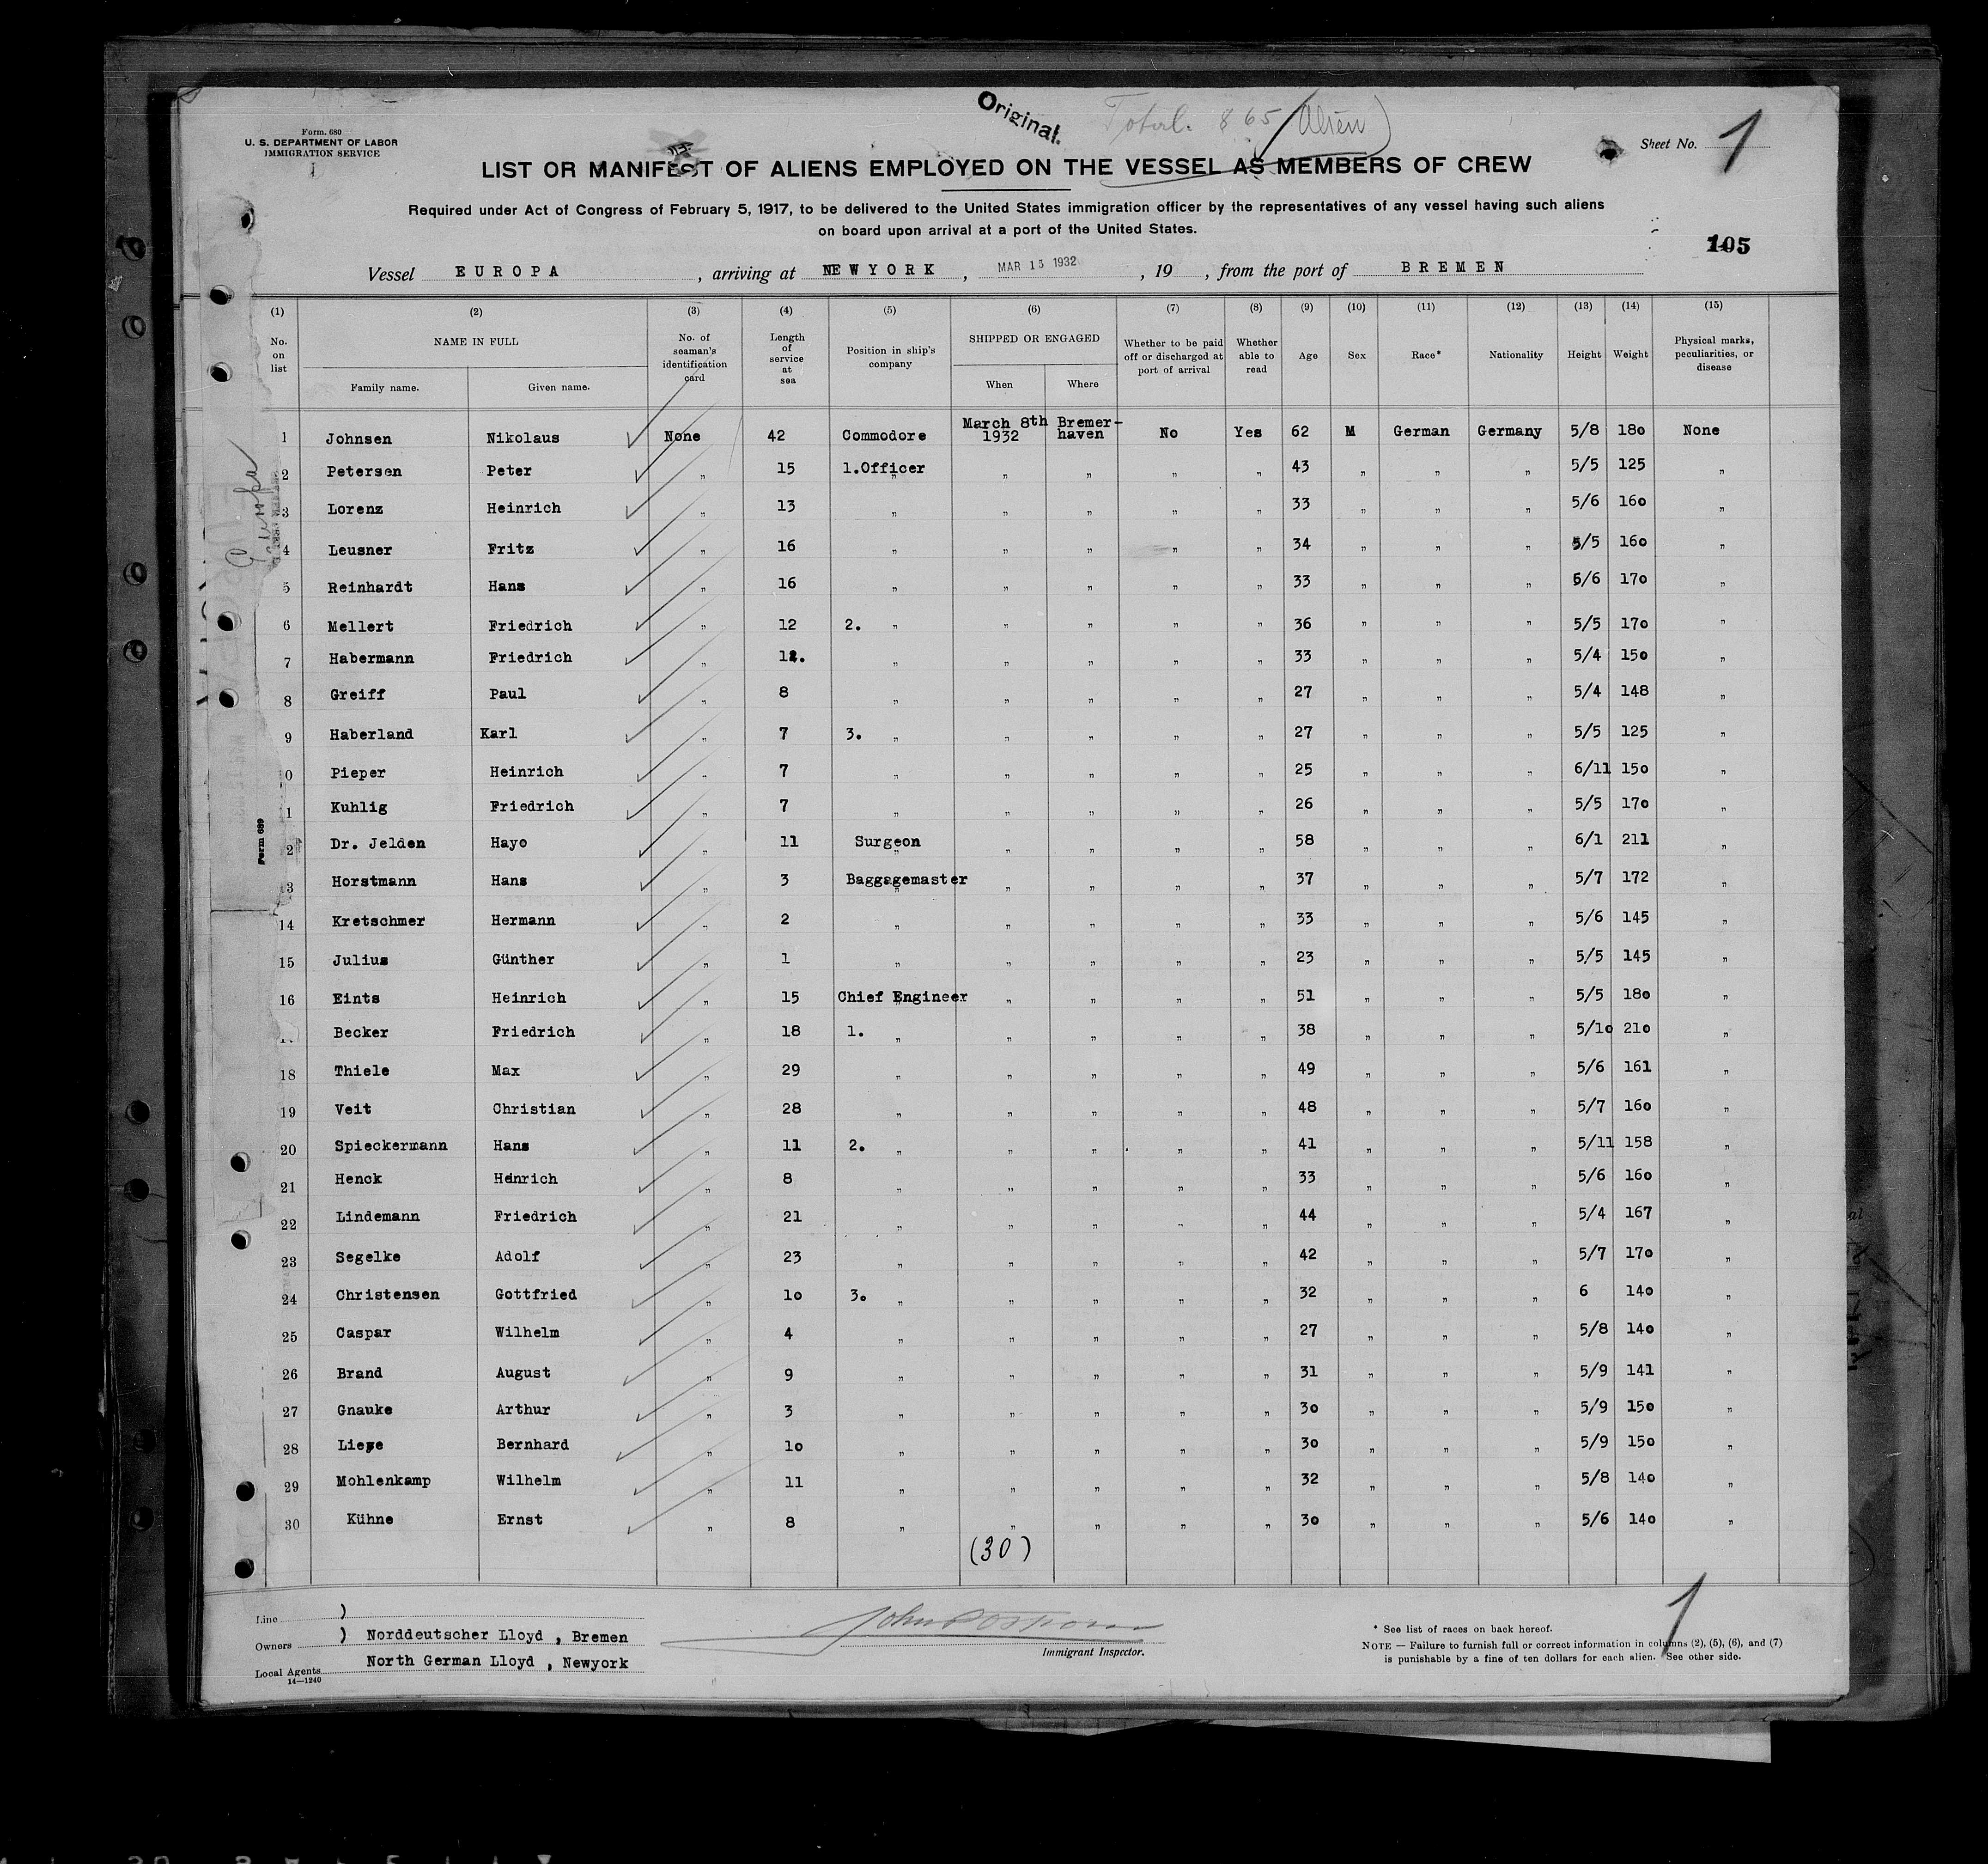 Original.
Total. 865 (Alien)
Form. 680
U. S. DEPARTMENT OF LABOR
IMMIGRATION SERVICE
Sheet No. 1
LIST OR MANIFEST OF ALIENS EMPLOYED ON THE VESSEL AS MEMBERS OF CREW
Required under Act of Congress of February 5, 1917, to be delivered to the United States immigration officer by the representatives of any vessel having such aliens
on board upon arrival at a port of the United States.
105
Vessel EUROPA, arriving at NEWYORK, MAR 15 1932, 19 , from the port of BREMEN
(1) (2) (3) (4) (5) (6) (7) (8) (9) (10) (11) (12) (13) (14) (15)
No. on list NAME IN FULL Family name. Given name. No. of seaman's identification card Length of service at sea Position in ship's company SHIPPED OR ENGAGED When Where Whether to be paid off or discharged at port of arrival Whether able to read Age Sex Race* Nationality Height Weight Physical marks, peculiarities, or disease
1 Johnsen Nikolaus None 42 Commodore March 8th 1932 Bremerhaven No Yes 62 M German Germany 5/8 180 None
2 Petersen Peter " 15 1.Officer " " " " 43 " " " 5/5 125 "
3 Lorenz Heinrich " 13 " " " " " 33 " " " 5/6 160 "
4 Leusner Fritz " 16 " " " " " 34 " " " 5/5 160 "
5 Reinhardt Hans " 16 " " " " " 33 " " " 5/6 170 "
6 Mellert Friedrich " 12 2. " " " " " 36 " " " 5/5 170 "
7 Habermann Friedrich " 12. " " " " " 33 " " " 5/4 150 "
8 Greiff Paul " 8 " " " " " 27 " " " 5/4 148 "
9 Haberland Karl " 7 3. " " " " " 27 " " " 5/5 125 "
0 Pieper Heinrich " 7 " " " " " 25 " " " 6/11 150 "
1 Kuhlig Friedrich " 7 " " " " " 26 " " " 5/5 170 "
2 Dr. Jelden Hayo " 11 Surgeon " " " " 58 " " " 6/1 211 "
3 Horstmann Hans " 3 Baggagemaster " " " " 37 " " " 5/7 172 "
14 Kretschmer Hermann " 2 " " " " " 33 " " " 5/6 145 "
15 Julius Günther " 1 " " " " " 23 " " " 5/5 145 "
16 Eints Heinrich " 15 Chief Engineer " " " " 51 " " " 5/5 180 "
Becker Friedrich " 18 1. " " " " " 38 " " " 5/10 210 "
18 Thiele Max " 29 " " " " " 49 " " " 5/6 161 "
19 Veit Christian " 28 " " " " " 48 " " " 5/7 160 "
20 Spieckermann Hans " 11 2. " " " " " 41 " " " 5/11 158 "
21 Henck Heinrich " 8 " " " " " 33 " " " 5/6 160 "
22 Lindemann Friedrich " 21 " " " " " 44 " " " 5/4 167 "
23 Segelke Adolf " 23 " " " " " 42 " " " 5/7 170 "
24 Christensen Gottfried " 10 3. " " " " " 32 " " " 6 140 "
25 Caspar Wilhelm " 4 " " " " " 27 " " " 5/8 140 "
26 Brand August " 9 " " " " " 31 " " " 5/9 141 "
27 Gnauke Arthur " 3 " " " " " 30 " " " 5/9 150 "
28 Bernhard " 10 " " " " " 30 " " " 5/9 150 "
29 Mohlenkamp Wilhelm " 11 " " " " " 32 " " " 5/8 140 "
30 Kühne Ernst " 8 " " " " " 30 " " " 5/6 140 "
(30)
Europa
Form 689
Line )
Owners ) Norddeutscher Lloyd , Bremen
Local Agents North German Lloyd , Newyork
14—1240
Immigrant Inspector.
* See list of races on back hereof.
NOTE — Failure to furnish full or correct information in columns (2), (5), (6), and (7)
is punishable by a fine of ten dollars for each alien. See other side.
1